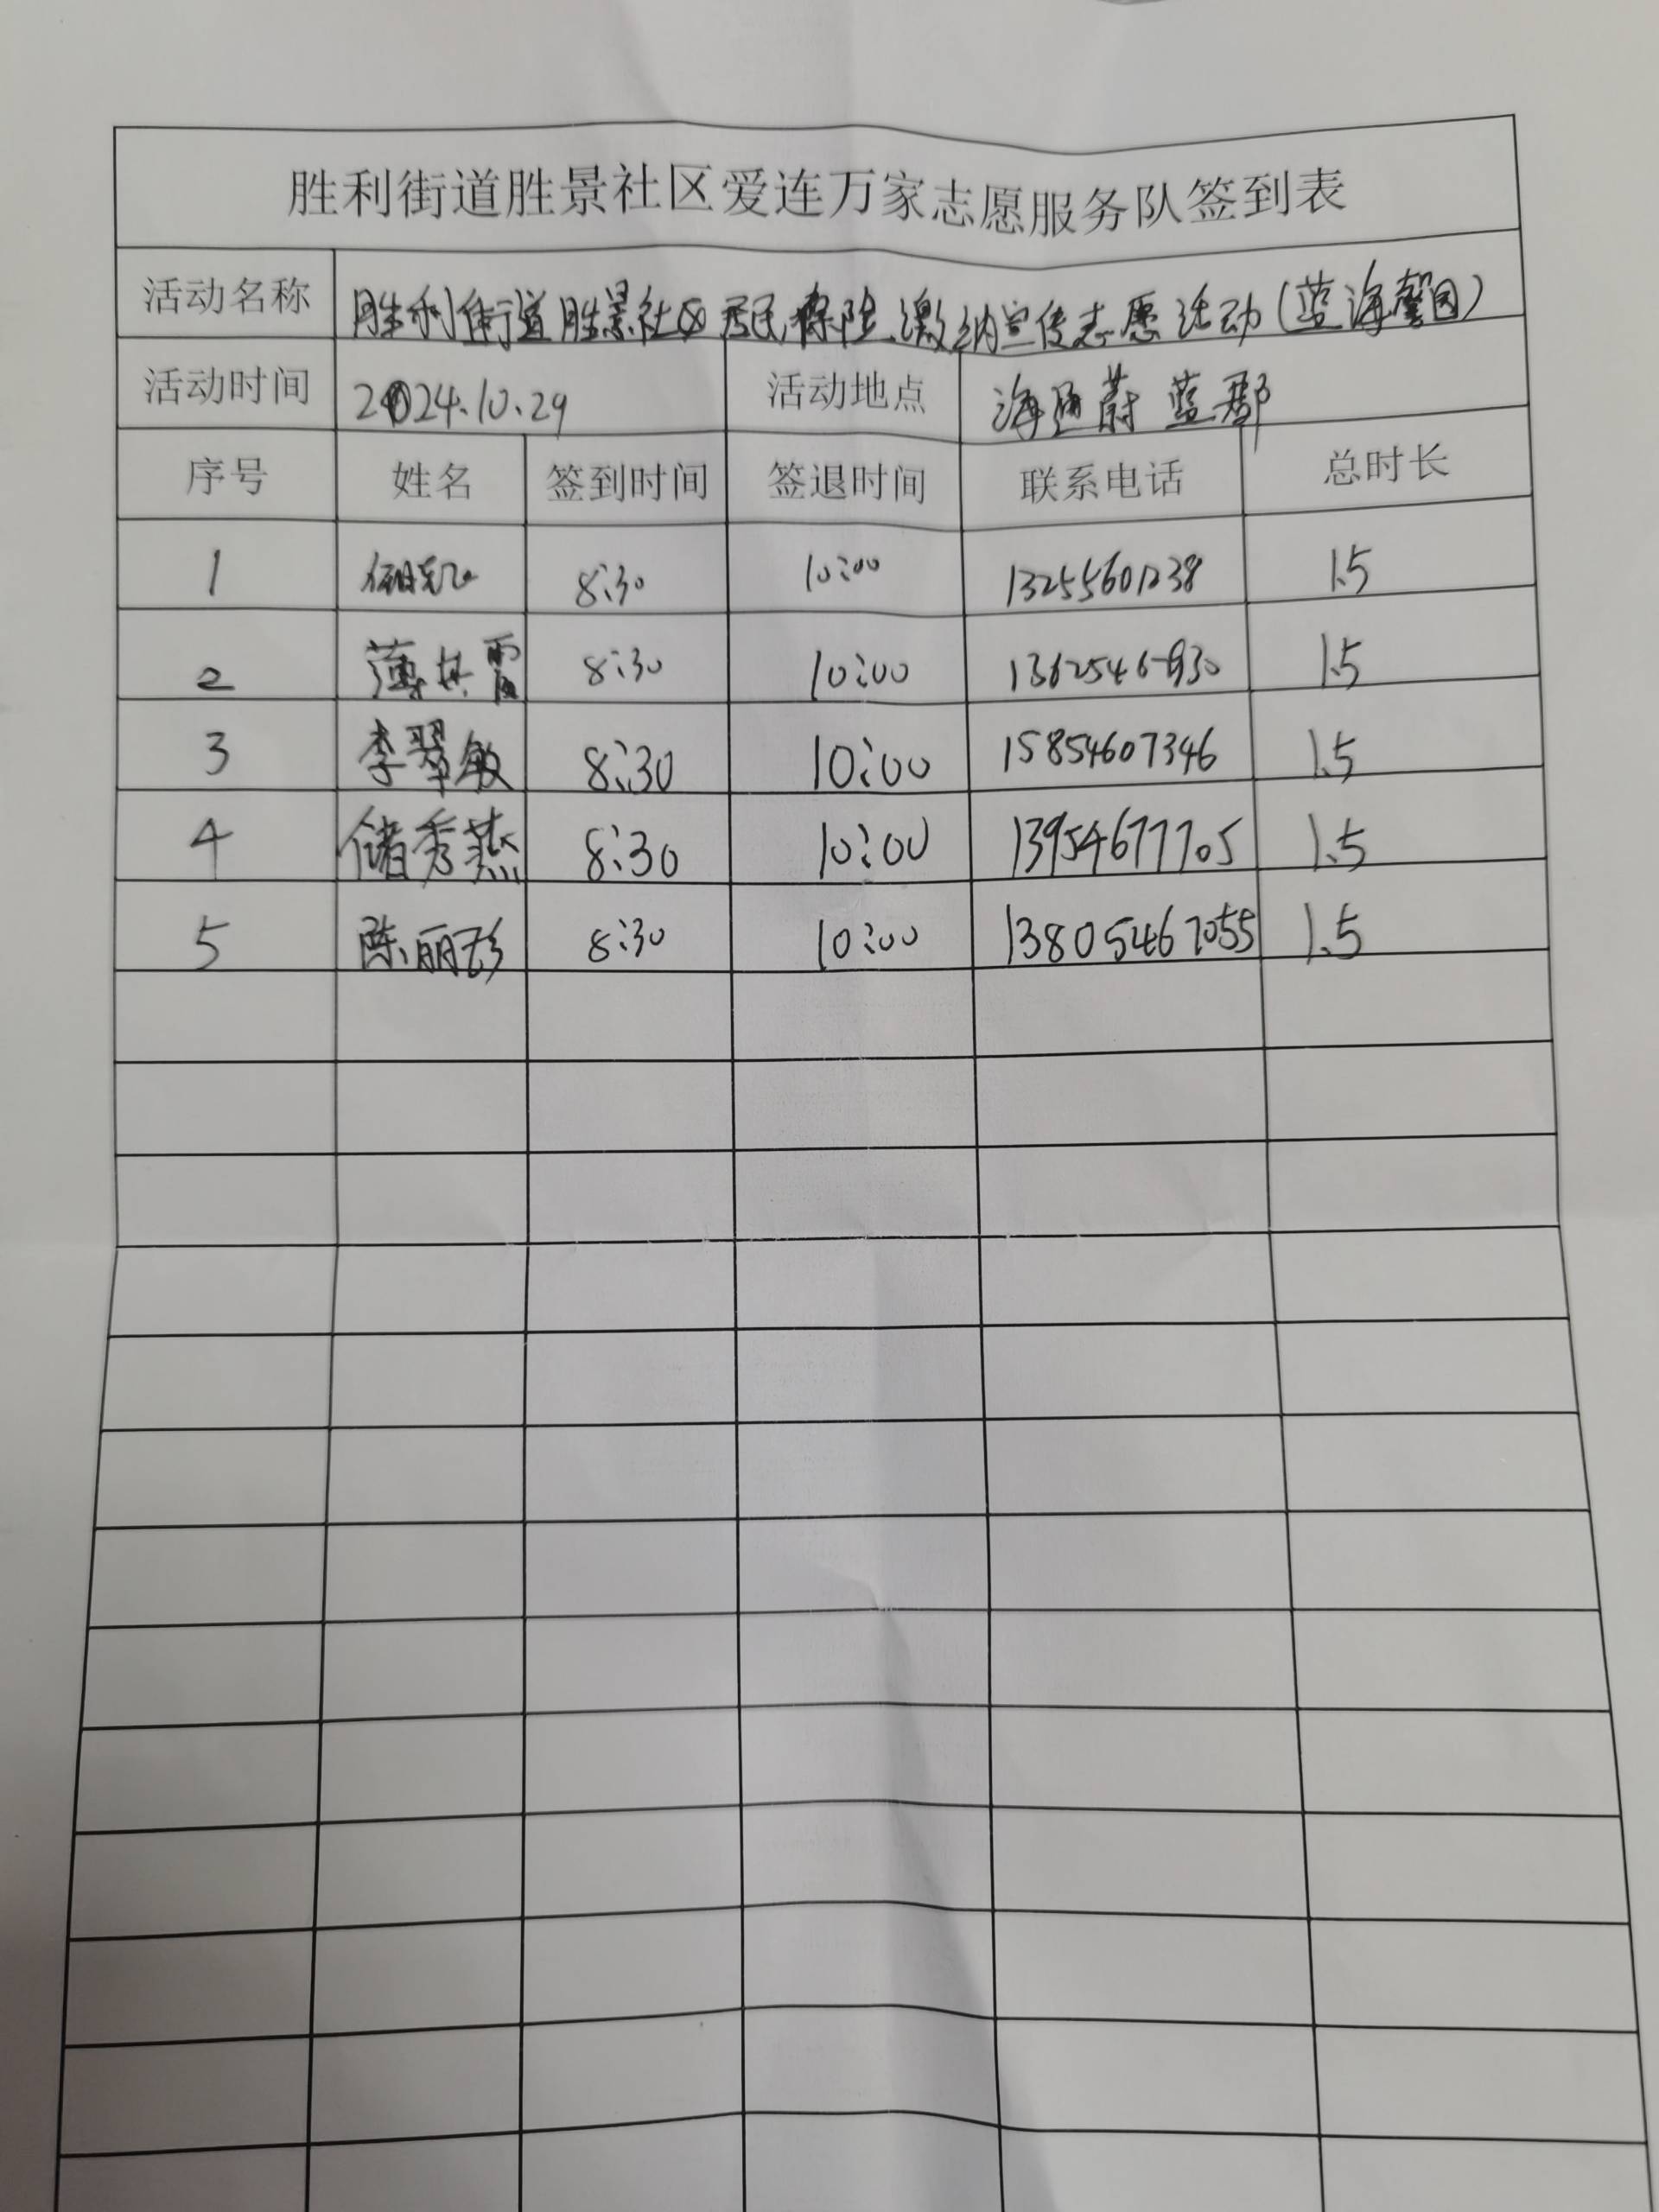 胜利街道胜景社区爱连万家志愿服务队签到表
活动名称 胜利街道胜景社区居民保险缴纳宣传志愿活动(蓝海馨园)
活动时间 2024.10.29 活动地点 海通蔚蓝郡
序号 姓名 签到时间 签退时间 联系电话 总时长
1 8:30 10:00 13255601238 1.5
2 薄其霞 8:30 10:00 1.5
3 李翠敏 8:30 10:00 15854607346 1.5
4 储秀燕 8:30 10:00 13954677705 1.5
5 陈丽珍 8:30 10:00 13805467055 1.5